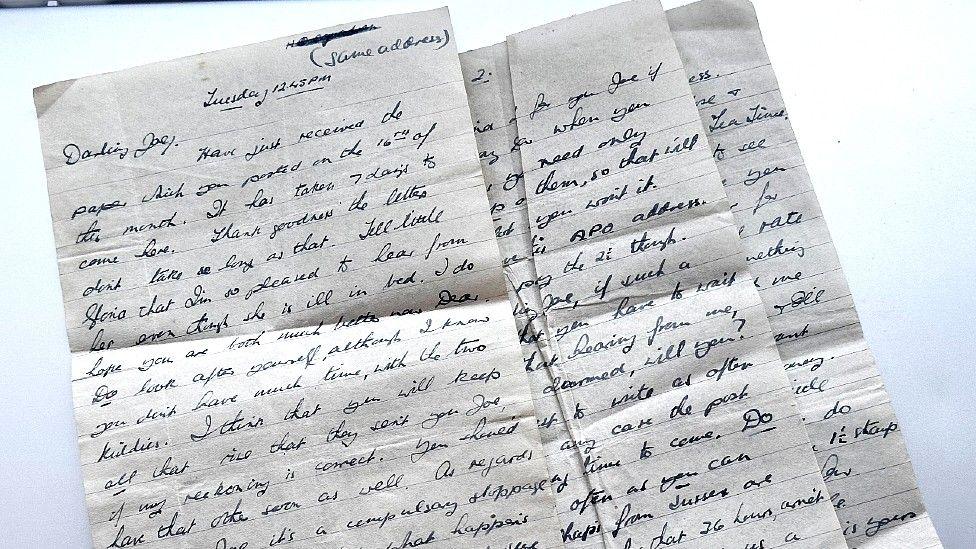 (Same address)
Tuesday 12.45PM
Darling Joey.
Have just received the
paper which you posted on the 16TH of
this month. It has taken 7 days to
come here. Thank goodness the letters
dont take so long as that. Tell little
Gloria that I'm so pleased to hear from
her even though she is ill in bed. I do
hope you are both much better now Dear.
Do look after yourself, although I know
you don't have much time, with the two
kiddies. I think that you will keep
all that rise that they sent you Joe,
if my reckoning is correct. You should
have that other soon as well. As regards
it's a compulsary stoppage
what happens
2.
for you Joe if
when you
need only
them, so that will
you won't it.
APO address.
the 2½ though.
Joe, if such a
you have to wait
hearing from me,
alarmed, will you?
to write as often
any case the post
time to come. Do
often as you can
chaps from Sussex are
that 36 hours,
a
ess.
Tea Time.
to see
you
for
rate
me
I'll
do
1½ stamp
is yours